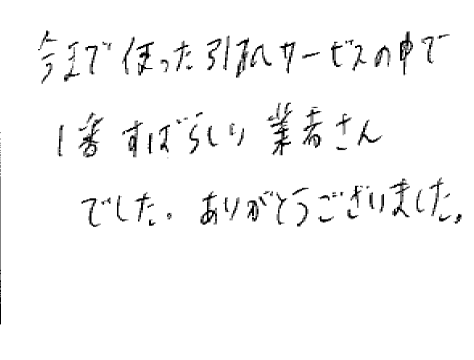 今まで使った引越サービスの中で
1番すばらしい業者さん
でした。ありがとうございました。